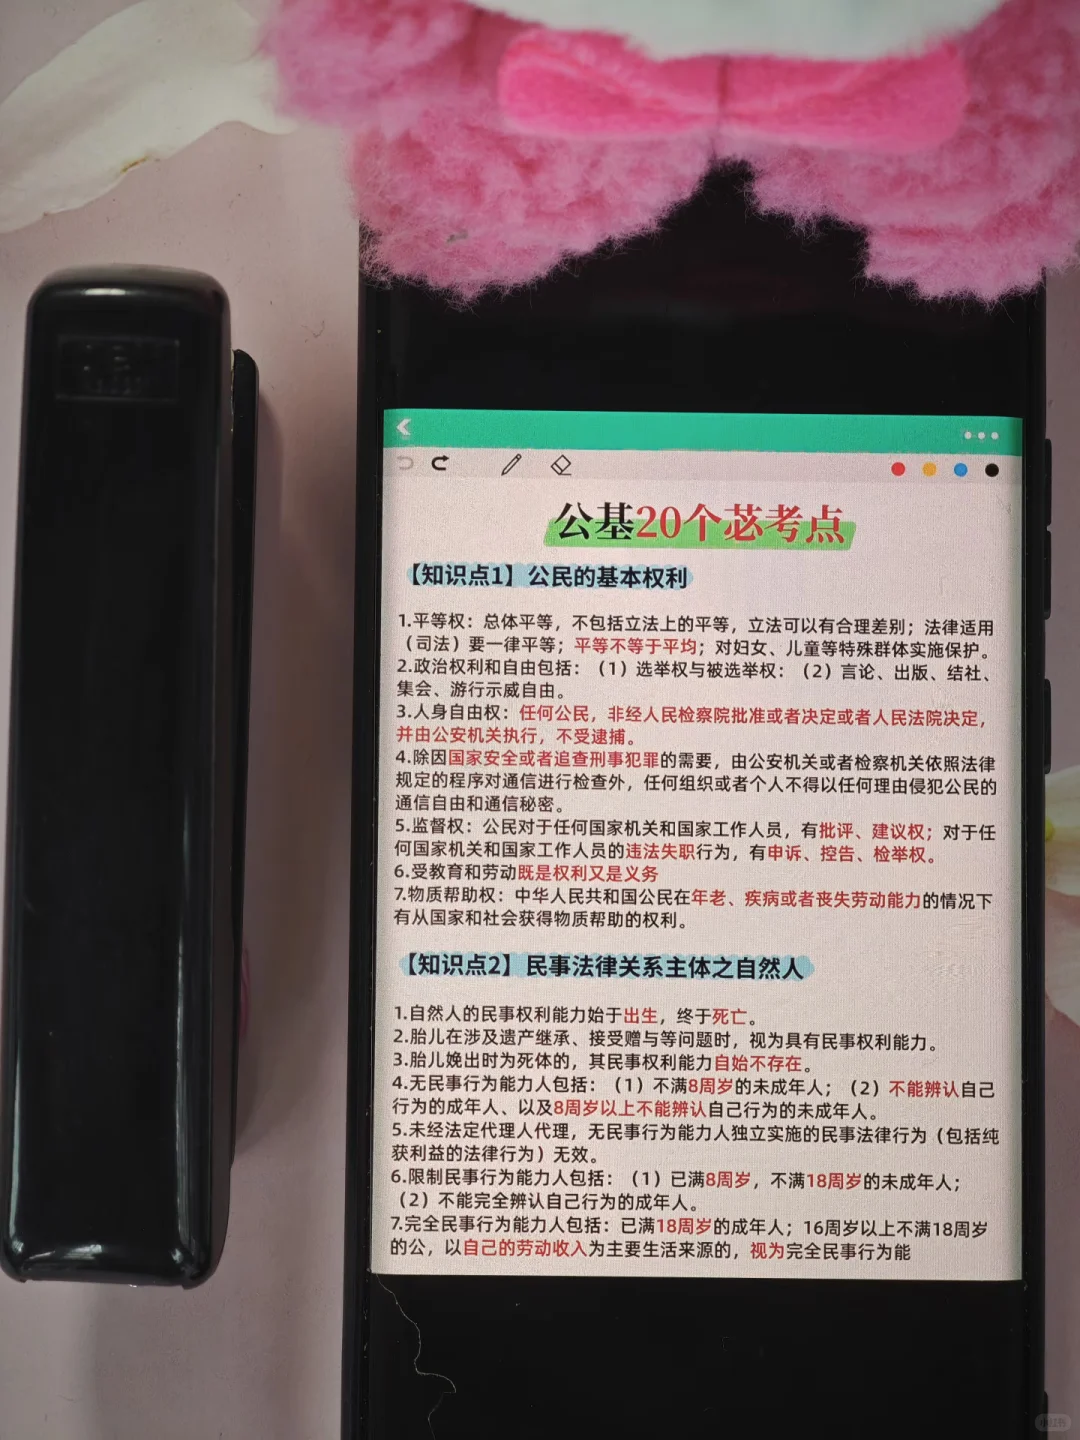 公基20个苾考点
【知识点1】公民的基本权利
1.平等权：总体平等，不包括立法上的平等，立法可以有合理差别；法律适用
（司法）要一律平等；平等不等于平均；对妇女、儿童等特殊群体实施保护。
2.政治权利和自由包括：（1）选举权与被选举权：（2）言论、出版、结社、
集会、游行示威自由。
3.人身自由权：任何公民，非经人民检察院批准或者决定或者人民法院决定，
并由公安机关执行，不受逮捕。
4.除因国家安全或者追查刑事犯罪的需要，由公安机关或者检察机关依照法律
规定的程序对通信进行检查外，任何组织或者个人不得以任何理由侵犯公民的
通信自由和通信秘密。
5.监督权：公民对于任何国家机关和国家工作人员，有批评、建议权；对于任
何国家机关和国家工作人员的违法失职行为，有申诉、控告、检举权。
6.受教育和劳动既是权利又是义务
7.物质帮助权：中华人民共和国公民在年老、疾病或者丧失劳动能力的情况下
有从国家和社会获得物质帮助的权利。
【知识点2】民事法律关系主体之自然人
1.自然人的民事权利能力始于出生，终于死亡。
2.胎儿在涉及遗产继承、接受赠与等问题时，视为具有民事权利能力。
3.胎儿娩出时为死体的，其民事权利能力自始不存在。
4.无民事行为能力人包括：（1）不满8周岁的未成年人；（2）不能辨认自己
行为的成年人、以及8周岁以上不能辨认自己行为的未成年人。
5.未经法定代理人代理，无民事行为能力人独立实施的民事法律行为（包括纯
获利益的法律行为）无效。
6.限制民事行为能力人包括：（1）已满8周岁，不满18周岁的未成年人；
（2）不能完全辨认自己行为的成年人。
7.完全民事行为能力人包括：已满18周岁的成年人；16周岁以上不满18周岁
的公，以自己的劳动收入为主要生活来源的，视为完全民事行为能